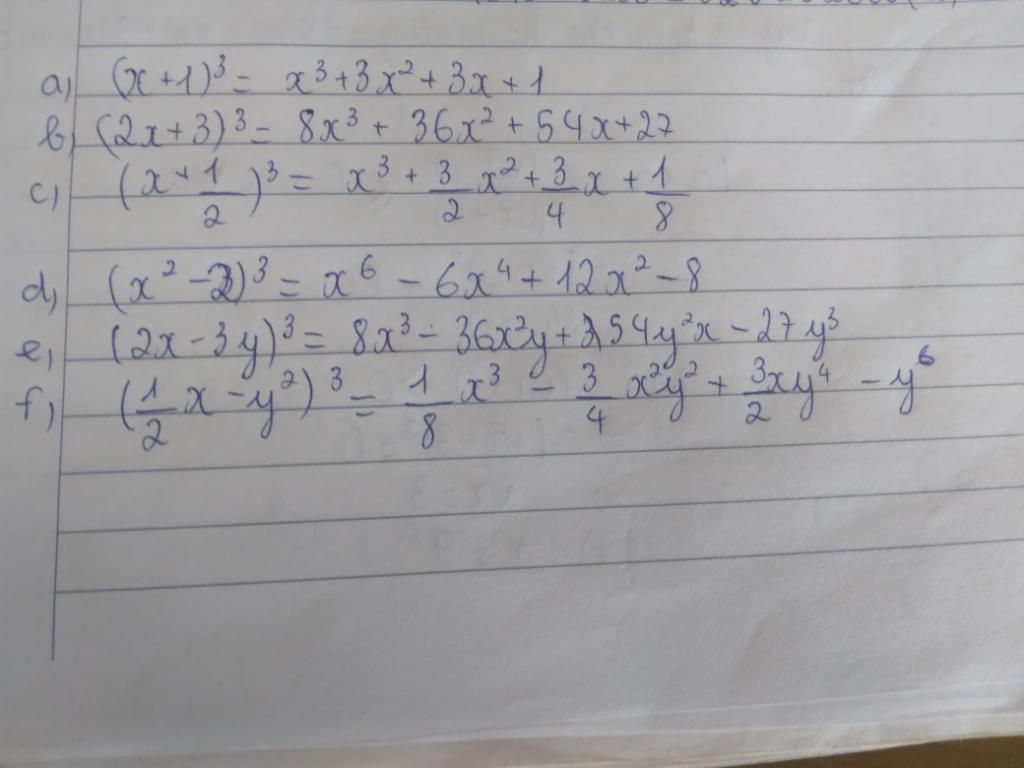 a) (x+1)³ = x³+3x²+3x+1
b) (2x+3)³ = 8x³ + 36x² + 54x+27
c) (x+1/2)³ = x³ + 3/2 x² + 3/4 x + 1/8
d) (x²-2)³ = x⁶ - 6x⁴ + 12x² - 8
e) (2x-3y)³ = 8x³ - 36x²y + 54y²x - 27y³
f) (1/2 x - y²)³ = 1/8 x³ - 3/4 x²y² + 3/2 xy⁴ - y⁶